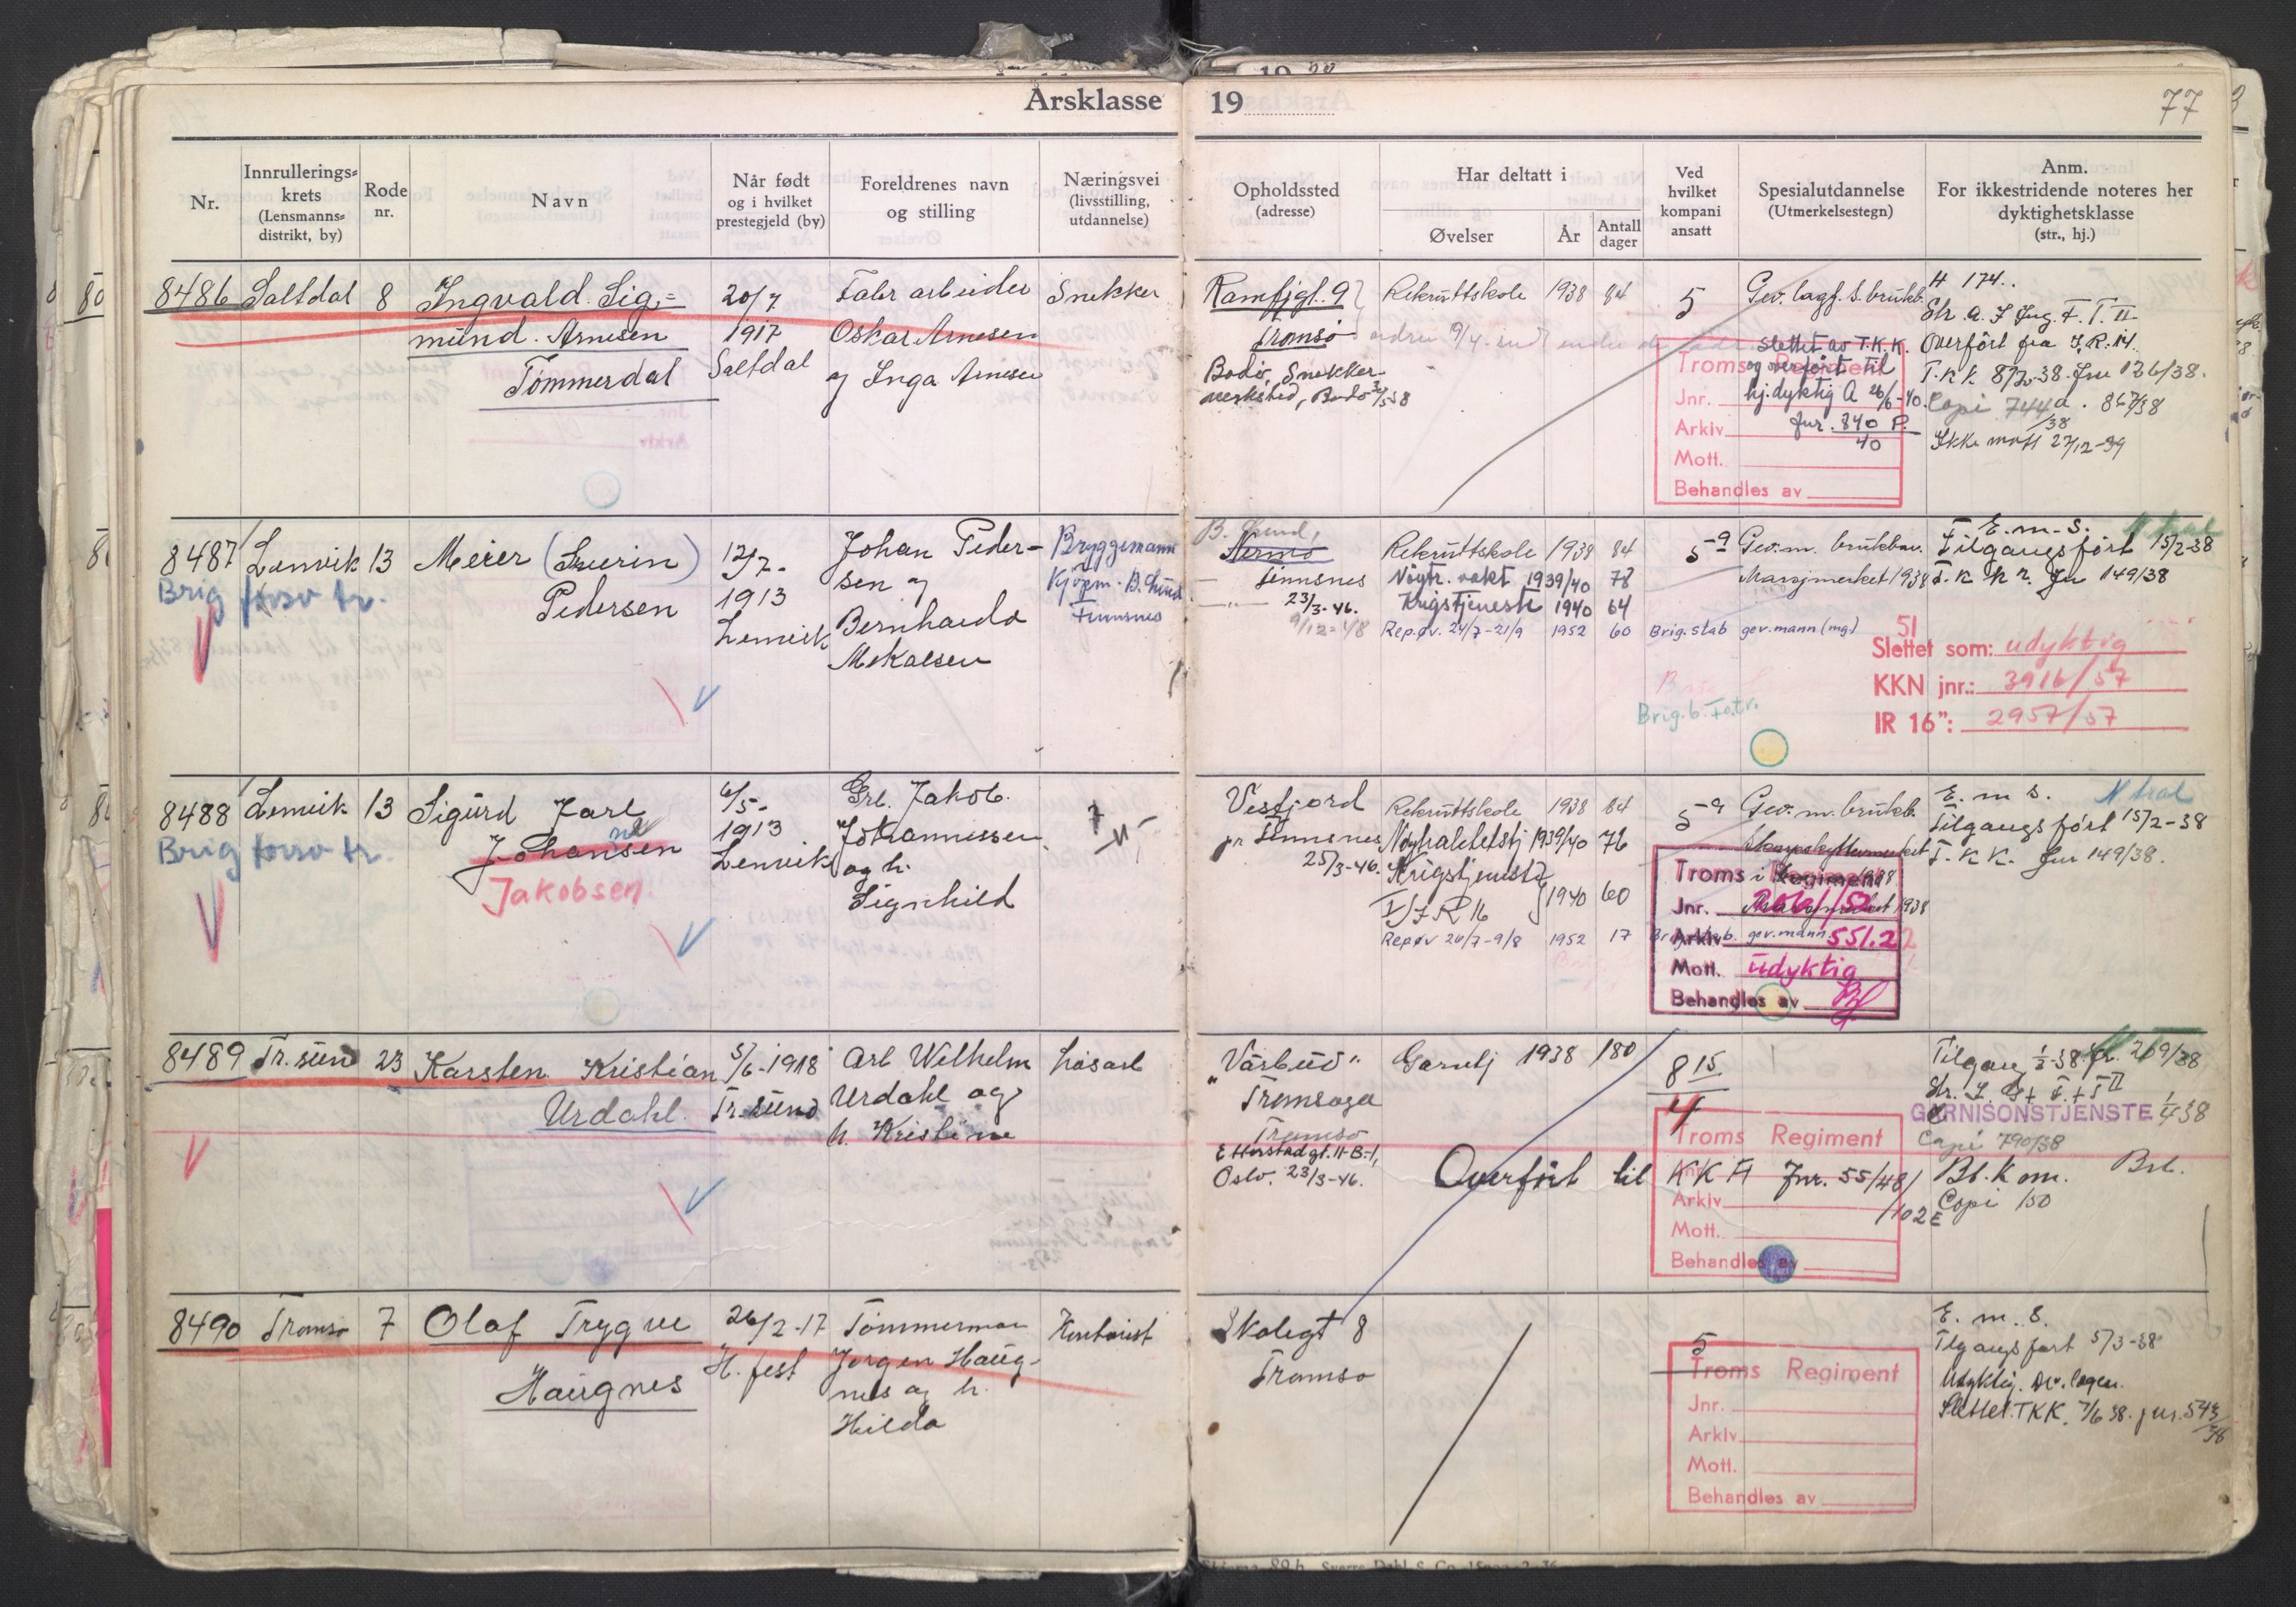 Årsklasse 19
77
Nr.
Innrullerings=
krets
(Lensmanns=
distrikt, by)
Rode
nr.
Navn
Når født
og i hvilket
prestegjeld (by)
Foreldrenes navn
og stilling
Næringsvei
(livsstilling,
utdannelse)
Opholdssted
(adresse)
Har deltatt i
Øvelser
År
Antall
dager
Ved
hvilket
kompani
ansatt
Spesialutdannelse
(Utmerkelsestegn)
Anm.
For ikkestridende noteres her
dyktighetsklasse
(str., hj.)
8486 Saltdal 8
Ingvald Sig=
mund. Arnesen
Tømmerdal
20/7
1917
Saltdal
Fabr arbeider
Oskar Arnesen
og Inga Arnesen
Snekker
Ramfjgt. 9
Tromsø
Bodø, Snekker-
verksted, Bodø
Rekruttskole 1938 84
5
Gev. lagf. s. brukb.
slettet av T.K.K.
og overført til
hj.dyktig A 26/6-40.
Jnr. 840 P.
40
Troms Regiment
Jnr.
Arkiv
Mott.
Behandles av
H 174.
Overført fra I.R. 14.
Copi 744a
Ikke møtt 27/12-39
8487 Lenvik 13
Brig forsv tr.
Meier (Severin)
Pedersen
12/7-
1913
Lenvik
Johan Peder-
sen og
Bernharda
Mikalsen
Bryggemann
Kjøpm. B. Lund
Finnsnes
B. Lund,
Finnsnes
23/3-46.
9/12-48
Rekruttskole 1938 84
Nøytr. vakt 1939/40 78
Krigstjeneste 1940 64
Rep.øv. 24/7-21/9 1952 60 Brig. stab gev.mann (mg)
5
Gev.m. brukbar.
Marsjmerket 1938
Brig.b. Fo.tr.
E.m.s.
Tilgangsført 15/2-38
T.K.K. Jnr 149/38
51
Slettet som: udyktig
KKN jnr.: 3916/57
IR 16": 2957/57
8488 Lenvik 13
Brig forsv tr.
Sigurd Jarl
Johansen
Jakobsen
6/5-
1913
Lenvik
Grb. Jakob
Johannessen
og h.
Signhild
Vesfjord
pr Finnsnes
25/3-46.
Rekruttskole 1938 84
Nøytralitetstj 1939/40 76
Krigstjeneste
I/IR 16 1940 60
Rep.øv 24/7-9/8 1952 17
5
Gev. m. brukb.
Skarpskyttermerket
Troms Regiment
Jnr.
Arkiv 551.2
Mott. udyktig
Behandles av
E. m s.
Tilgangsført 15/2-38
T.K.K. Jnr 149/38.
8489 Tr.sund 23
Karsten Kristian
Urdahl.
5/6-1918
Tr.sund
Arb Wilhelm
Urdahl og
h. Kristine
Løsarb
"Vårbud"
Tromsøya
Tromsø
Etterstadgt. 11-B-1,
Oslo. 23/3-46.
Garntj 1938 180
8 15
4
Overført til KKA Jnr. 55/48/
102E
Troms Regiment
Arkiv
Mott.
Behandles av
Tilgang 1/3-38 Jnr. 269/38
GARNISONSTJENESTE 1/4 38
Copi 790/38
Bt.Kom.
Copi 150
8490 Tromsø 7
Olaf Trygve
Haugnes
26/2-17
H.fest
Tømmerman
Jørgen Haug-
nes og h.
Hilda
Kontorist
Skolegt 8
Tromsø
5
Troms Regiment
Jnr.
Arkiv
Mott.
Behandles av
E. m. s.
Tilgangsført 5/3-38
Udyktig. Av. legen.
Slettet. TKK. 7/6 38. jnr. 543/38